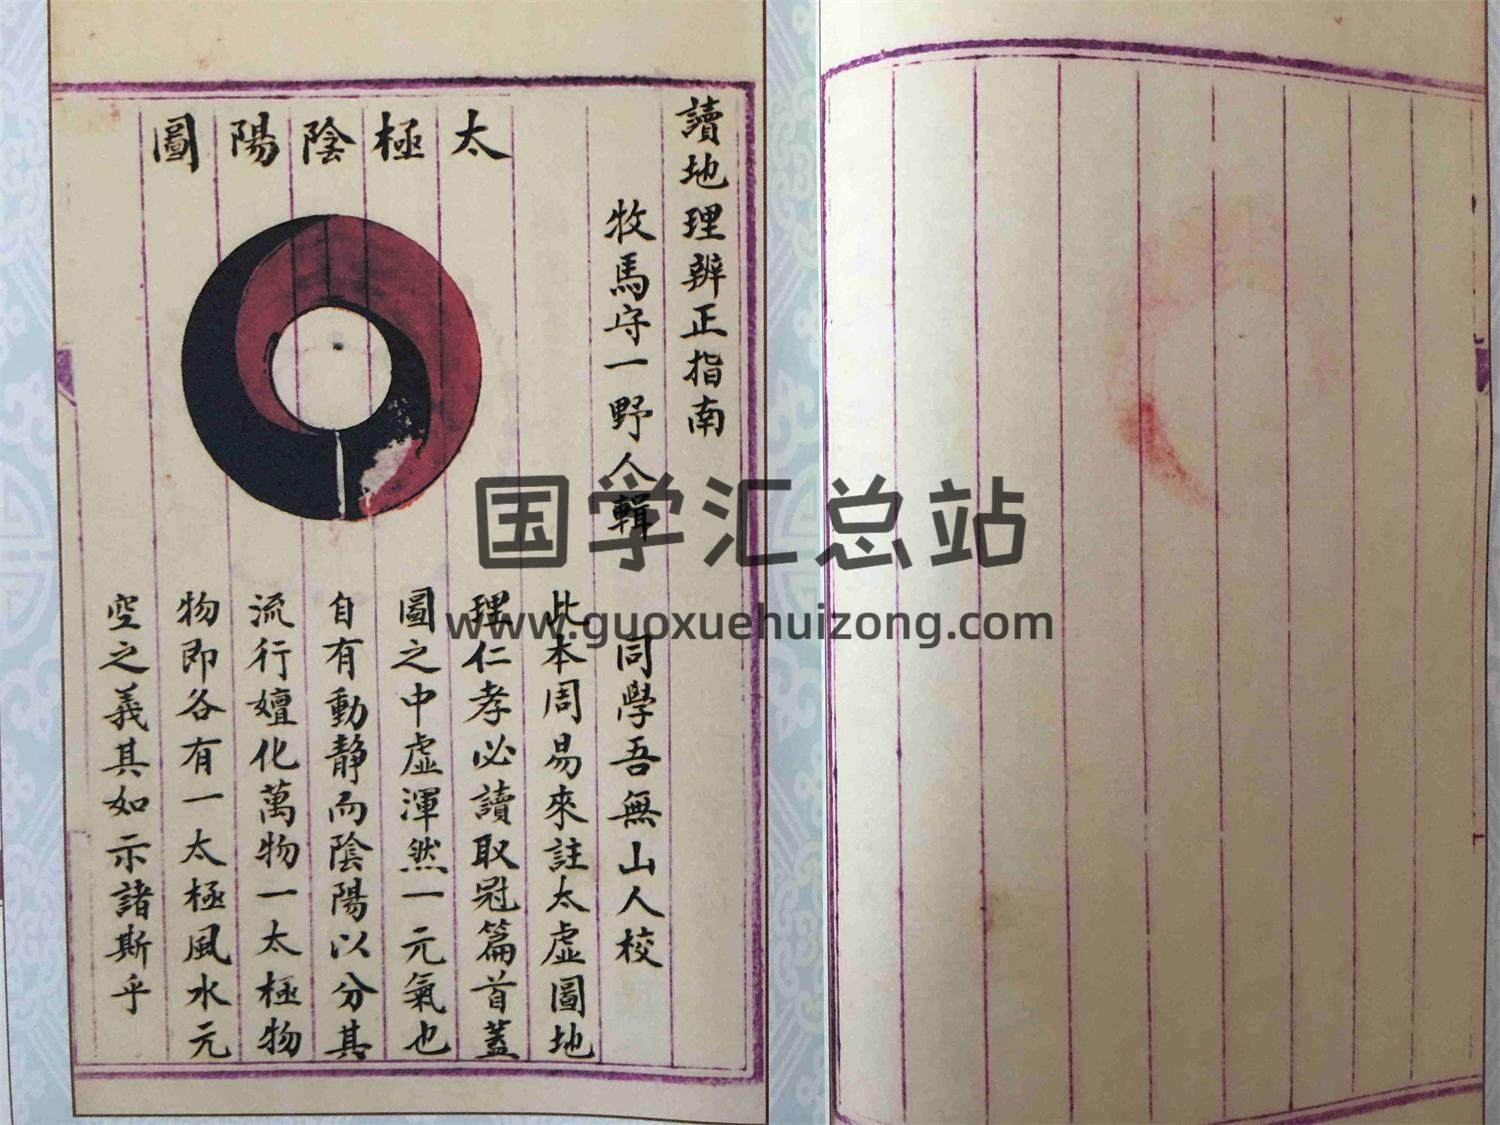 讀地理辨正指南
牧馬守一野人輯
同學吾無山人校
太極陰陽圖
此本周易來註太虛圖地
理仁孝必讀取冠篇首蓋
圖之中虛渾然一元氣也
自有動靜而陰陽以分其
流行嬗化萬物一太極物
物即各有一太極風水元
空之義其如示諸斯乎
国学汇总站
www.guoxuehuizong.com